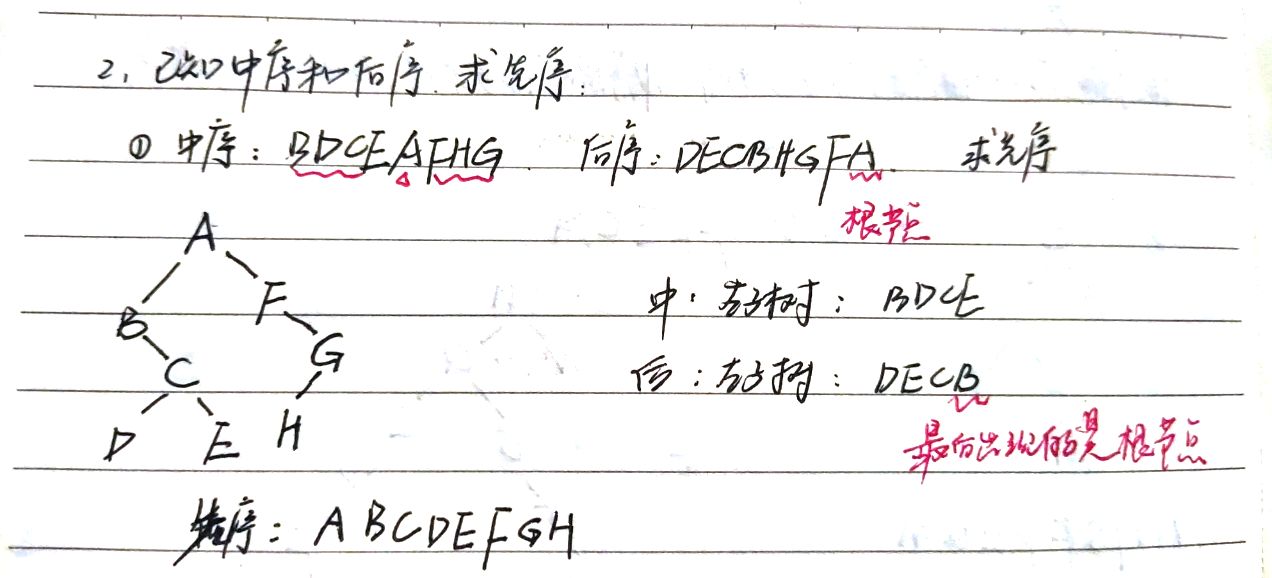 2, 已知中序和后序. 求先序.
① 中序: BDCEAFHG. 后序: DECBHGFA. 求先序
根节点
A
B F
C G
D E H
中: 左子树: BDCE
后: 左子树: DECB
最后出现的是根节点
先序: ABCDEFGH